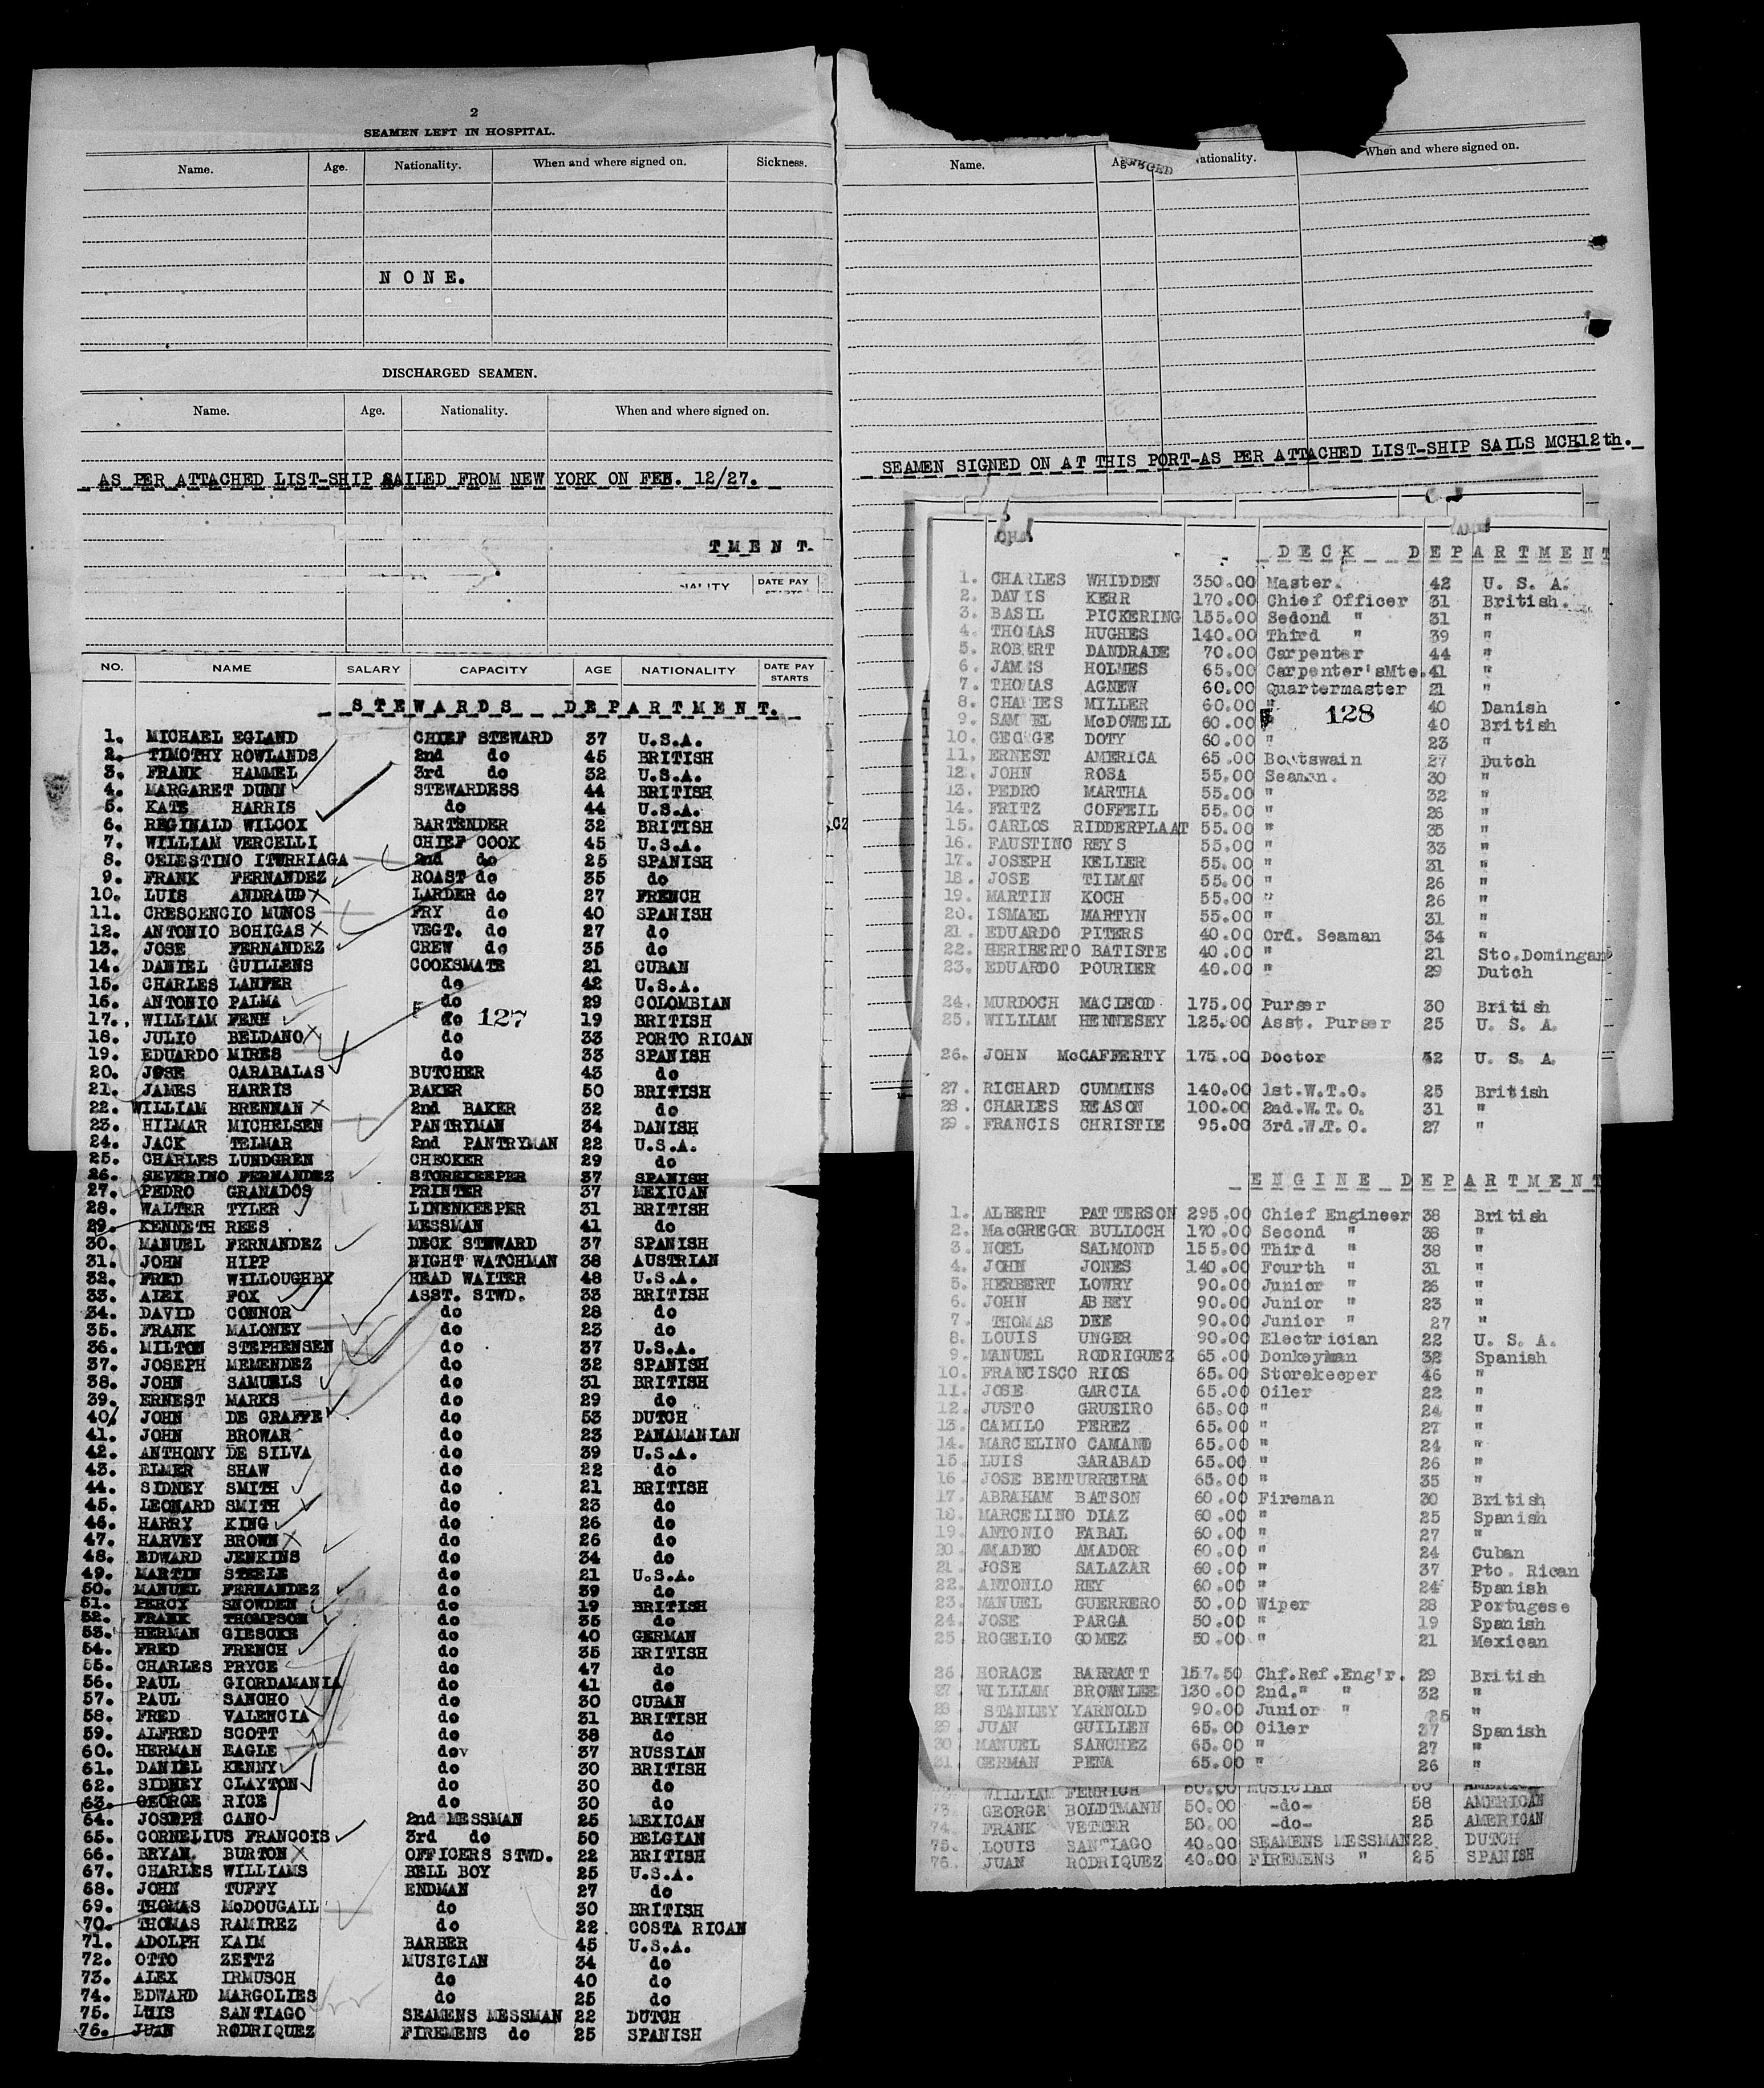 2
SEAMEN LEFT IN HOSPITAL.
Name. Age. Nationality. When and where signed on. Sickness.
NONE.
DISCHARGED SEAMEN.
Name. Age. Nationality. When and where signed on.
AS PER ATTACHED LIST-SHIP SAILED FROM NEW YORK ON FEB. 12/27.
TMENT.
DATE PAY
NO. NAME SALARY CAPACITY AGE NATIONALITY DATE PAY STARTS
STEWARDS DEPARTMENT.
1. MICHAEL EGLAND CHIEF STEWARD 37 U.S.A.
2. TIMOTHY ROWLANDS 2nd do 45 BRITISH
3. FRANK HAMMEL 3rd do 32 U.S.A.
4. MARGARET DUNN STEWARDESS 44 BRITISH
5. KATE HARRIS do 44 U.S.A.
6. REGINALD WILCOX BARTENDER 32 BRITISH
7. WILLIAM VERCELLI CHIEF COOK 45 U.S.A.
8. CELESTINO ITURRIAGA 2nd do 25 SPANISH
9. FRANK FERNANDEZ ROAST do 35 do
10. LUIS ANDRAUD LARDER do 27 FRENCH
11. CRESCENCIO MUNOS FRY do 40 SPANISH
12. ANTONIO BOHIGAS VEGT. do 27 do
13. JOSE FERNANDEZ CREW do 35 do
14. DANIEL GUILLENS COOKSMATE 21 CUBAN
15. CHARLES LANFER do 42 U.S.A.
16. ANTONIO PALMA do 29 COLOMBIAN
17. WILLIAM FENN do 127 19 BRITISH
18. JULIO BELDANO do 33 PORTO RICAN
19. EDUARDO MIRES do 33 SPANISH
20. JOSE CARABALAS BUTCHER 43 do
21. JAMES HARRIS BAKER 50 BRITISH
22. WILLIAM BRENNAN 2nd BAKER 32 do
23. HILMAR MICHELSEN PANTRYMAN 34 DANISH
24. JACK TELMAR 2nd PANTRYMAN 22 U.S.A.
25. CHARLES LUNDGREN CHECKER 29 do
26. SEVERINO FERNANDEZ STOREKEEPER 37 SPANISH
27. PEDRO GRANADOS PRINTER 37 MEXICAN
28. WALTER TYLER LINENKEEPER 31 BRITISH
29. KENNETH REES MESSMAN 41 do
30. MANUEL FERNANDEZ DECK STEWARD 37 SPANISH
31. JOHN HIPP NIGHT WATCHMAN 38 AUSTRIAN
32. FRED WILLOUGHBY HEAD WAITER 48 U.S.A.
33. ALEX FOX ASST. STWD. 33 BRITISH
34. DAVID CONNOR do 28 do
35. FRANK MALONEY do 23 do
36. MILTON STEPHENSEN do 37 U.S.A.
37. JOSEPH MEMENDEZ do 32 SPANISH
38. JOHN SAMUELS do 31 BRITISH
39. ERNEST MARKS do 29 do
40. JOHN DE GRAFFE do 53 DUTCH
41. JOHN BROWAR do 23 PANAMANIAN
42. ANTHONY DE SILVA do 39 U.S.A.
43. ELMER SHAW do 22 do
44. SIDNEY SMITH do 21 BRITISH
45. LEONARD SMITH do 23 do
46. HARRY KING do 26 do
47. HARVEY BROWN do 26 do
48. EDWARD JENKINS do 34 do
49. MARTIN STEELE do 21 U.S.A.
50. MANUEL FERNANDEZ do 39 do
51. PERCY SNOWDEN do 19 BRITISH
52. FRANK THOMPSON do 35 do
53. HERMAN GIESCKE do 40 GERMAN
54. FRED FRENCH do 35 BRITISH
55. CHARLES PRYCE do 47 do
56. PAUL GIORDAMANIA do 41 do
57. PAUL SANCHO do 30 CUBAN
58. FRED VALENCIA do 31 BRITISH
59. ALFRED SCOTT do 38 do
60. HERMAN EAGLE do 37 RUSSIAN
61. DANIEL KENNY do 30 BRITISH
62. SIDNEY CLAYTON do 30 do
63. GEORGE RICE do 30 do
64. JOSEPH CANO 2nd MESSMAN 25 MEXICAN
65. CORNELIUS FRANCOIS 3rd do 50 BELGIAN
66. BRYAN. BURTON OFFICERS STWD. 22 BRITISH
67. CHARLES WILLIAMS BELL BOY 25 U.S.A.
68. JOHN TUFFY ENDMAN 27 do
69. THOMAS McDOUGALL do 30 BRITISH
70. THOMAS RAMIREZ do 22 COSTA RICAN
71. ADOLPH KAIM BARBER 45 U.S.A.
72. OTTO ZEITZ MUSICIAN 34 do
73. ALEX IRMUSCH do 40 do
74. EDWARD MARGOLIES do 25 do
75. LUIS SANTIAGO SEAMENS MESSMAN 22 DUTCH
76. JUAN RODRIQUEZ FIREMENS do 25 SPANISH
Name. Nationality. When and where signed on.
SEAMEN SIGNED ON AT THIS PORT-AS PER ATTACHED LIST-SHIP SAILS MCH12th.
DECK DEPARTMENT
1. CHARLES WHIDDEN 350.00 Master. 42 U. S. A.
2. DAVIS KERR 170.00 Chief Officer 31 British.
3. BASIL PICKERING 155.00 Sedond " 31 "
4. THOMAS HUGHES 140.00 Third " 39 "
5. ROBERT DANDRADE 70.00 Carpenter 44 "
6. JAMES HOLMES 65.00 Carpenter'sMte. 41 "
7. THOMAS AGNEW 60.00 Quartermaster 21 "
8. CHARLES MILLER 60.00 " 40 Danish
9. SAMUEL McDOWELL 60.00 " 128 40 British
10. GEORGE DOTY 60.00 " 23 "
11. ERNEST AMERICA 65.00 Boatswain 27 Dutch
12. JOHN ROSA 55.00 Seaman. 30 "
13. PEDRO MARTHA 55.00 " 32 "
14. FRITZ COFFEIL 55.00 " 26 "
15. CARLOS RIDDERPLAAT 55.00 " 35 "
16. FAUSTINO REYS 55.00 " 33 "
17. JOSEPH KELLER 55.00 " 31 "
18. JOSE TILMAN 55.00 " 26 "
19. MARTIN KOCH 55.00 " 26 "
20. ISMAEL MARTYN 55.00 " 31 "
21. EDUARDO PITERS 40.00 Ord. Seaman 34 "
22. HERIBERTO BATISTE 40.00 " 21 Sto.Domingan
23. EDUARDO POURIER 40.00 " 29 Dutch
24. MURDOCH MACLEOD 175.00 Purser 30 British
25. WILLIAM HENNESEY 125.00 Asst. Purser 25 U. S. A.
26. JOHN McCAFFERTY 175.00 Doctor 52 U. S. A.
27. RICHARD CUMMINS 140.00 1st.W.T.O. 25 British
28. CHARLES REASON 100.00 2nd.W.T.O. 31 "
29. FRANCIS CHRISTIE 95.00 3rd.W.T.O. 27 "
ENGINE DEPARTMENT
1. ALBERT PATTERSON 295.00 Chief Engineer 38 British
2. MacGREGOR BULLOCH 170.00 Second " 38 "
3. NOEL SALMOND 155.00 Third " 38 "
4. JOHN JONES 140.00 Fourth " 31 "
5. HERBERT LOWRY 90.00 Junior " 26 "
6. JOHN ABBEY 90.00 Junior " 23 "
7. THOMAS DEE 90.00 Junior " 27 "
8. LOUIS UNGER 90.00 Electrician 22 U. S. A.
9. MANUEL RODRIGUEZ 65.00 Donkeyman 32 Spanish
10. FRANCISCO RIOS 65.00 Storekeeper 46 "
11. JOSE GARCIA 65.00 Oiler 22 "
12. JUSTO GRUEIRO 65.00 " 24 "
13. CAMILO PEREZ 65.00 " 27 "
14. MARCELINO CAMANO 65.00 " 24 "
15. LUIS GARABAD 65.00 " 26 "
16. JOSE BENTURREIRA 65.00 " 35 "
17. ABRAHAM BATSON 60.00 Fireman 30 British
18. MARCELINO DIAZ 60.00 " 25 Spanish
19. ANTONIO FABAL 60.00 " 27 "
20. AMADEO AMADOR 60.00 " 24 Cuban
21. JOSE SALAZAR 60.00 " 37 Pto. Rican
22. ANTONIO REY 60.00 " 24 Spanish
23. MANUEL GUERRERO 50.00 Wiper 28 Portugese
24. JOSE PARGA 50.00 " 19 Spanish
25. ROGELIO GOMEZ 50.00 " 21 Mexican
26 HORACE BARRATT 157.50 Chf.Ref.Eng'r. 29 British
27. WILLIAM BROWNLEE 130.00 2nd." " 32 "
28 STANLEY YARNOLD 90.00 Junior " 25 "
29. JUAN GUILLEN 65.00 Oiler 37 Spanish
30 MANUEL SANCHEZ 65.00 " 27 "
31. GERMAN PENA 65.00 " 26 "
WILLIAM FENRICH 50.00 MUSICIAN 50 AMERICAN
73. GEORGE BOLDTMANN 50.00 -do- 58 AMERICAN
74. FRANK VETTER 50.00 -do- 25 AMERICAN
75. LOUIS SANTIAGO 40.00 SEAMENS MESSMAN 22 DUTCH
76. JUAN RODRIQUEZ 40.00 FIREMENS " 25 SPANISH